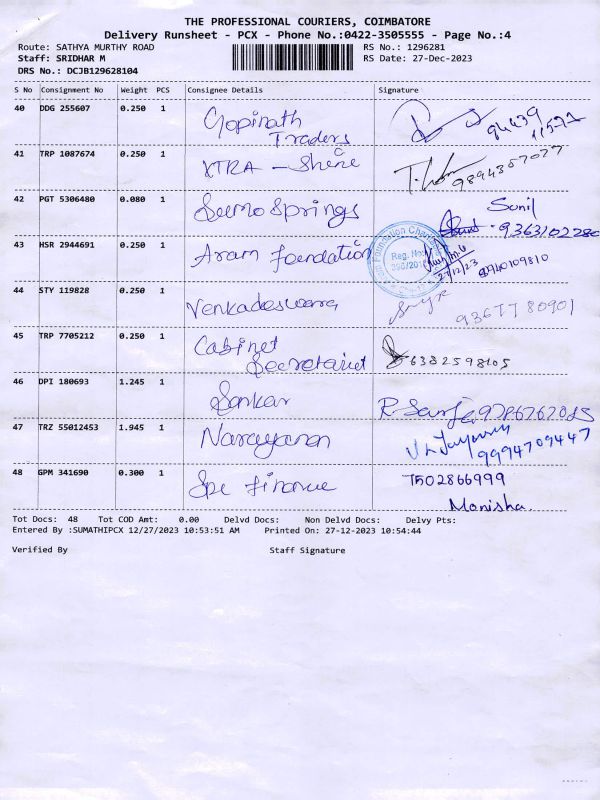 THE PROFESSIONAL COURIERS, COIMBATORE
Delivery Runsheet - PCX - Phone No.:0422-3505555 - Page No.:4
Route: SATHYA MURTHY ROAD RS No.: 1296281
Staff: SRIDHAR M RS Date: 27-Dec-2023
DRS No.: DCJB129628104
S No Consignment No Weight PCS Consignee Details Signature
40 DDG 255607 0.250 1 Gopinath Traders 94439
11577
41 TRP 1087674 0.250 1 XTRA - Shine 9894357077
42 PGT 5306480 0.080 1 Sumo Springs Sunil
9363102280
43 HSR 2944691 0.250 1 Aram foundation
Reg. No.
27/12/23 8940109810
44 STY 119828 0.250 1 Venkadeswara 9367780901
45 TRP 7705212 0.250 1 Cabinet Secretariet 6382598105
46 DPI 180693 1.245 1 Sankar
47 TRZ 55012453 1.945 1 Narayanan 9994709447
48 GPM 341690 0.300 1 Spe finance 7502866999
Monisha.
Tot Docs: 48 Tot COD Amt: 0.00 Delvd Docs: Non Delvd Docs: Delvy Pts:
Entered By :SUMATHIPCX 12/27/2023 10:53:51 AM Printed On: 27-12-2023 10:54:44
Verified By Staff Signature